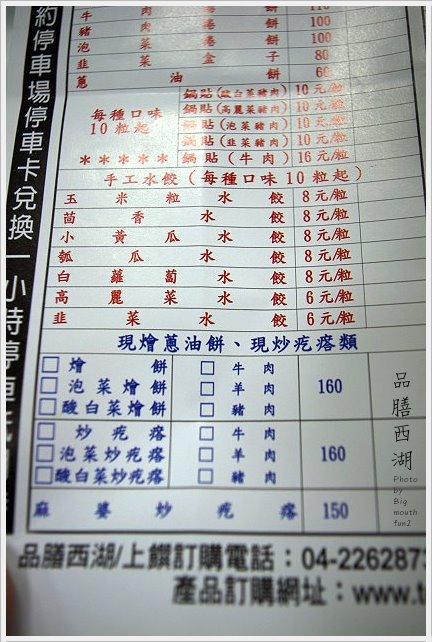 約停車場停車卡兌換一小時停車
牛肉捲餅 110
豬肉捲餅 100
泡菜捲餅 100
韭菜盒子 80
蔥油餅 60
每種口味
10粒起
＊＊＊＊＊
鍋貼(酸白菜豬肉) 10元/粒
鍋貼(高麗菜豬肉) 10元/粒
鍋貼(泡菜豬肉) 10元/粒
鍋貼(韭菜豬肉) 10元/粒
鍋貼(牛肉) 16元/粒
手工水餃(每種口味10粒起)
玉米粒水餃 8元/粒
茴香水餃 8元/粒
小黃瓜水餃 8元/粒
瓠瓜水餃 8元/粒
白蘿蔔水餃 8元/粒
高麗菜水餃 6元/粒
韭菜水餃 6元/粒
現燴蔥油餅、現炒疙瘩類
□燴餅 □牛肉
□泡菜燴餅 □羊肉 160
□酸白菜燴餅 □豬肉
□炒疙瘩 □牛肉
□泡菜炒疙瘩 □羊肉 160
□酸白菜炒疙瘩 □豬肉
麻婆炒疙瘩 150
品膳西湖
Photo
by
Big
mouth
fun2
品膳西湖/上饌訂購電話：04-2262873
產品訂購網址：www.t